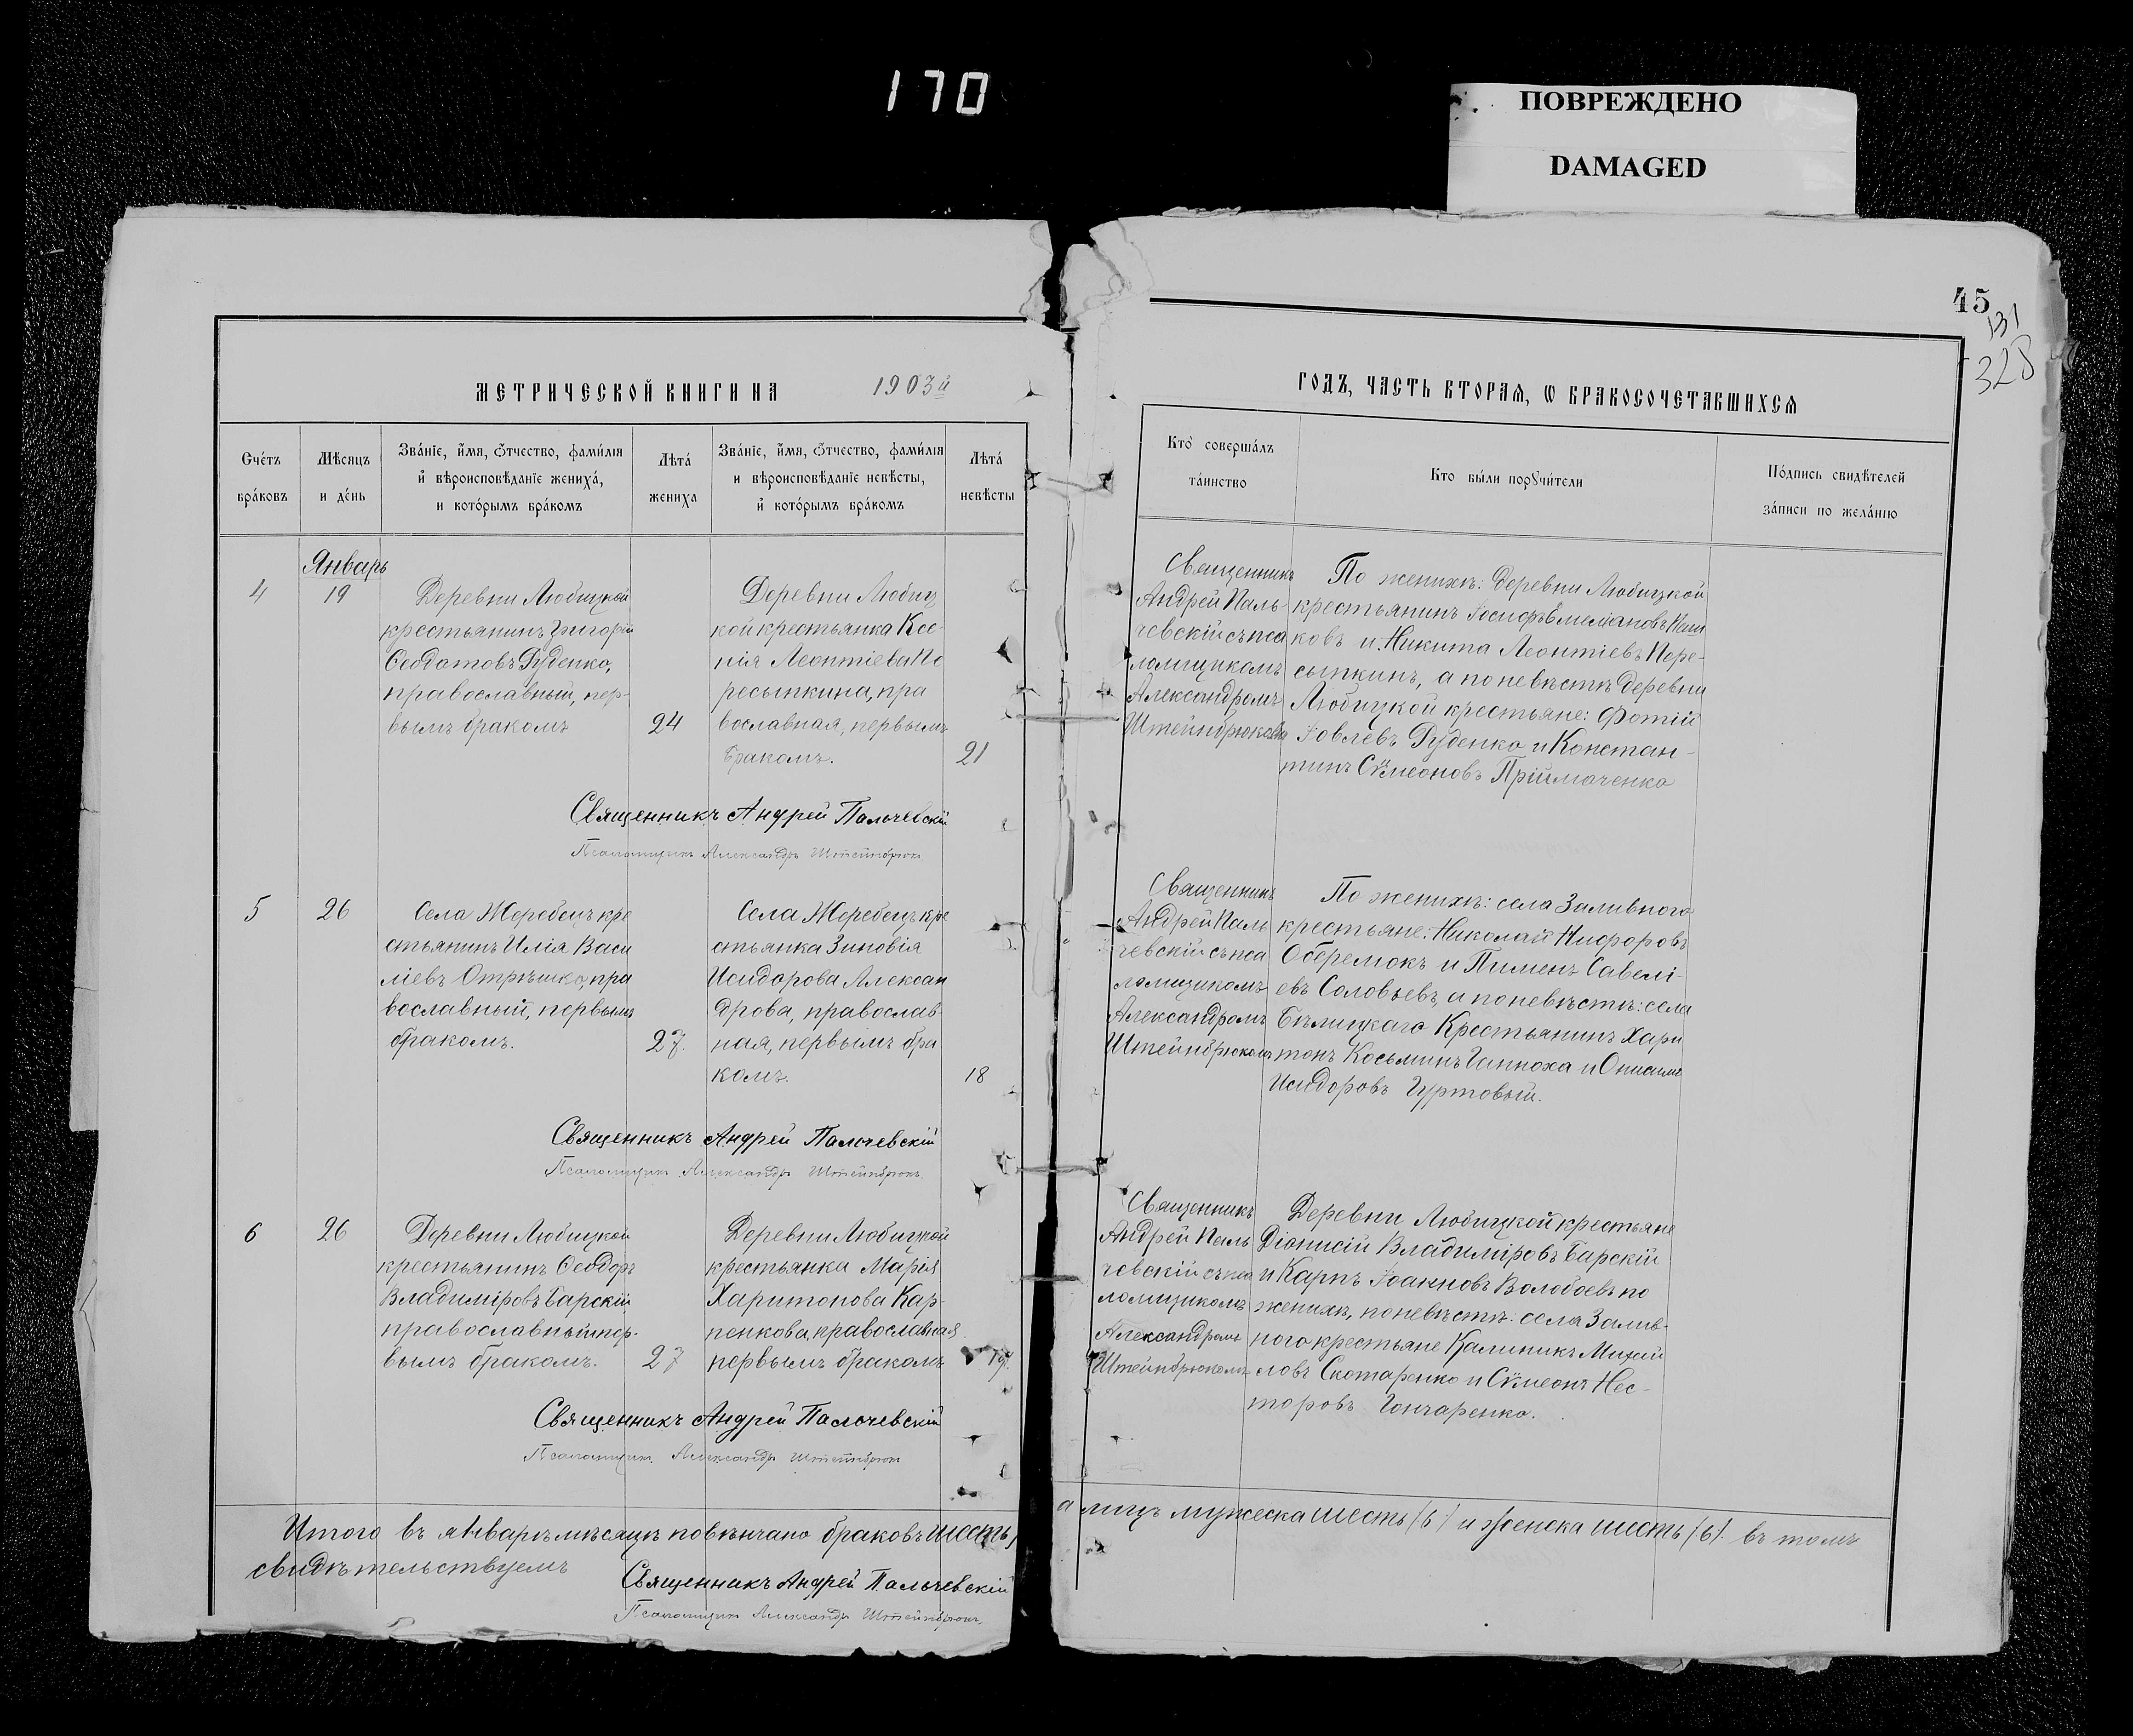 170
ПОВРЕЖДЕНО
DAMAGED
45
131
328
МЕТРИЧЕСКОЙ КНИГИ НА 1903й
ГОДЪ, ЧАСТЬ ВТОРАѦ, Ѡ БРАКОСОЧЕТАВШИХСѦ
Счéтъ
брáковъ
Мѣсяцъ
и дéнь
Звáнїе, и́мя, ѻ́тчество, фами́лїя
и҆ вѣроисповѣ́данїе женихá,
и котóрымъ брáкомъ
Лѣтá
жениха
Звáнїе, и́мя, ѻ́тчество, фами́лїя
и вѣроисповѣ́данїе невѣ́сты,
и҆ котóрымъ брáкомъ
Лѣтá
невѣ́сты
Ктò совершáлъ
тáинство
Кто бы́ли порꙋчи́тели
Пóдпись свидѣ́телей
зáписи по желáнїю
Январь
4
19
Деревни Любицкой
крестьянинъ Григорій
Ѳеодотовъ Руденко,
православный, пер-
вымъ бракомъ
24
Деревни Любиц
кой крестьянка Ксе-
нія Леонтіева Пе
ресыпкина, пра
вославная, первымъ
бракомъ.
21
Священникъ
Андрей Паль-
чевскій съ пса
ломщикомъ
Александромъ
Штейнбрюкомъ
По женихѣ: деревни Любицкой
крестьянинъ Іосифъ Емеліановъ
ковъ и Никита Леонтіевъ Пере-
сыпкинъ, а по невѣстѣ деревни
Любицкой крестьяне: Фотій
Іовлевъ Руденко и Констан-
тинъ Сѵмеоновъ Пріймаченко
Священникъ Андрей Пальчевскій
Псаломщикъ Александръ Штейнбрюкъ
5
26
Села Жеребецъ кре
стьянинъ Илія Васи
ліевъ Отрѣшко, пра
вославный, первымъ
бракомъ.
27.
Села Жеребецъ кре
стьянка Зиновія
Исидорова Алексан
дрова, православ-
ная, первымъ бра
комъ.
18
Священникъ
Андрей Паль
чевскій съ пса
ломщикомъ
Александромъ
Штейнбрюкомъ
По женихѣ: села Заливного
крестьяне: Николай Нифоровъ
Оберемокъ и Пименъ Савелі-
евъ Соловьевъ, а по невѣстѣ: села
Бѣлицкаго Крестьянинъ Хари
тонъ Косьминъ и
Исидоровъ Гуртовый.
Священникъ Андрей Пальчевскій
Псаломщикъ Александръ Штейнбрюкъ
6
26
Деревни Любицкой
крестьянинъ Ѳеодоръ
Владиміровъ Барскій
православный пер-
вымъ бракомъ.
27
Деревни Любицкой
крестьянка Марія
Харитонова Кар-
пенкова, православная
первымъ бракомъ
19.
Священникъ
Андрей Паль
чевскій съ пса
ломщикомъ
Александромъ
Штейнбрюкомъ
Деревни Любицкой крестьяне
Діонисій Владиміровъ Барскій
и Карпъ Іоанновъ Волобоевъ по
женихѣ, по невѣстѣ: села Залив-
ного крестьяне Калиникъ Михай
ловъ Скотаренко и Сѵмеонъ Нес-
торовъ Гончаренко.
Священникъ Андрей Пальчевскій
Псаломщикъ Александръ Штейнбрюкъ
Итого въ январѣ мѣсяцѣ повѣнчано браковъ шесть,
а лицъ мужеска шесть (6) и женска шесть (6). въ томъ
свидѣтельствуемъ
Священникъ Андрей Пальчевскій
Псаломщикъ Александръ Штейнбрюкъ.